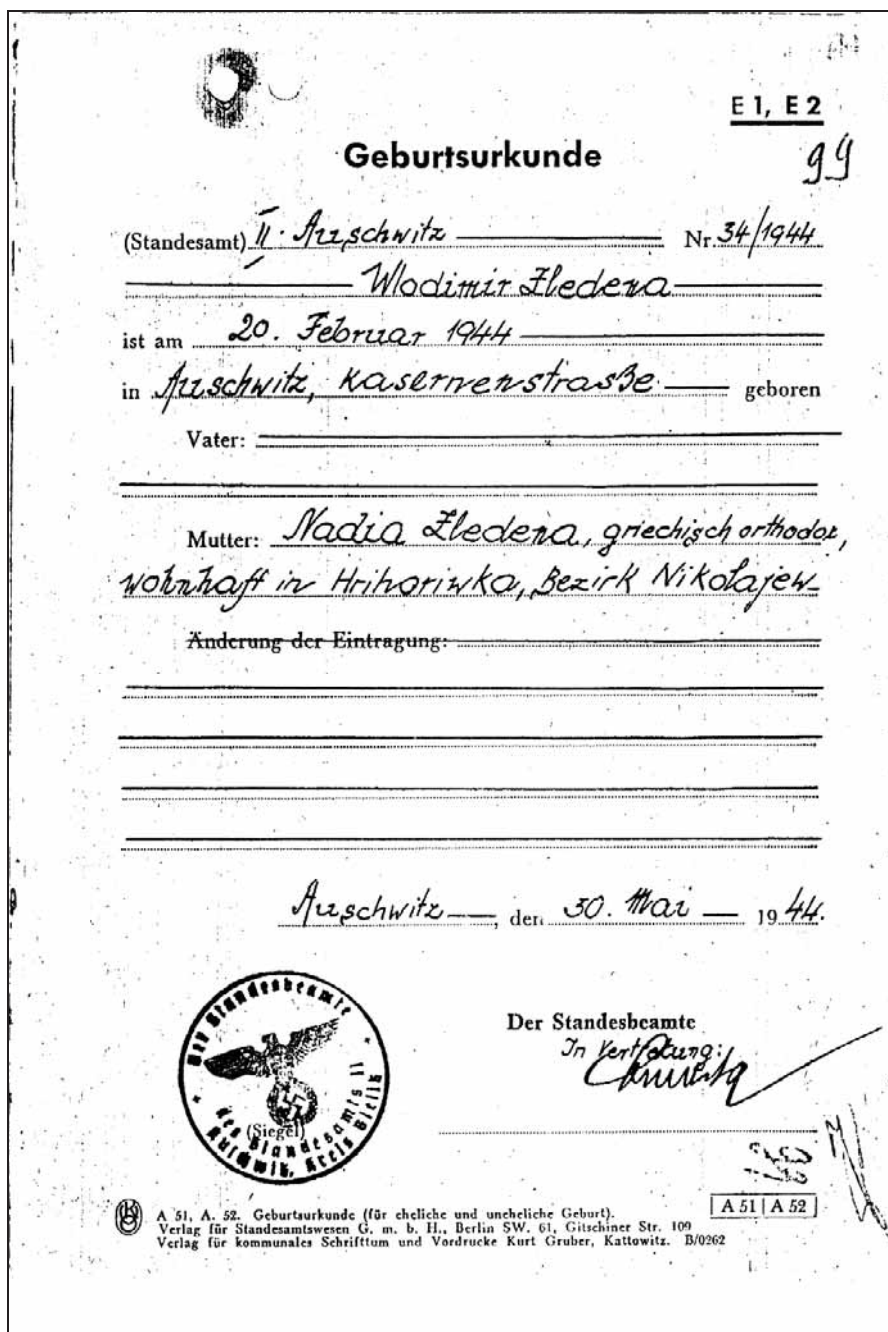 E 1, E 2
Geburtsurkunde
99
(Standesamt) II. Auschwitz Nr. 34/1944
Wlodimir Zledena
ist am 20. Februar 1944
in Auschwitz, Kasernenstraße geboren
Vater:
Mutter: Nadia Zledena, griechisch orthodox,
wohnhaft in Hrihoriwka, Bezirk Nikolajew
Änderung der Eintragung:
Auschwitz, den 30. Mai 1944.
Der Standesbeamte
des Standesamts II
Auschwitz, Kreis Bielitz
(Siegel)
Der Standesbeamte
In Vertretung:
A 51 | A 52
A 51, A. 52. Geburtsurkunde (für eheliche und uneheliche Geburt).
Verlag für Standesamtswesen G. m. b. H., Berlin SW. 61, Gitschiner Str. 109
Verlag für kommunales Schrifttum und Vordrucke Kurt Gruber, Kattowitz. B/0262